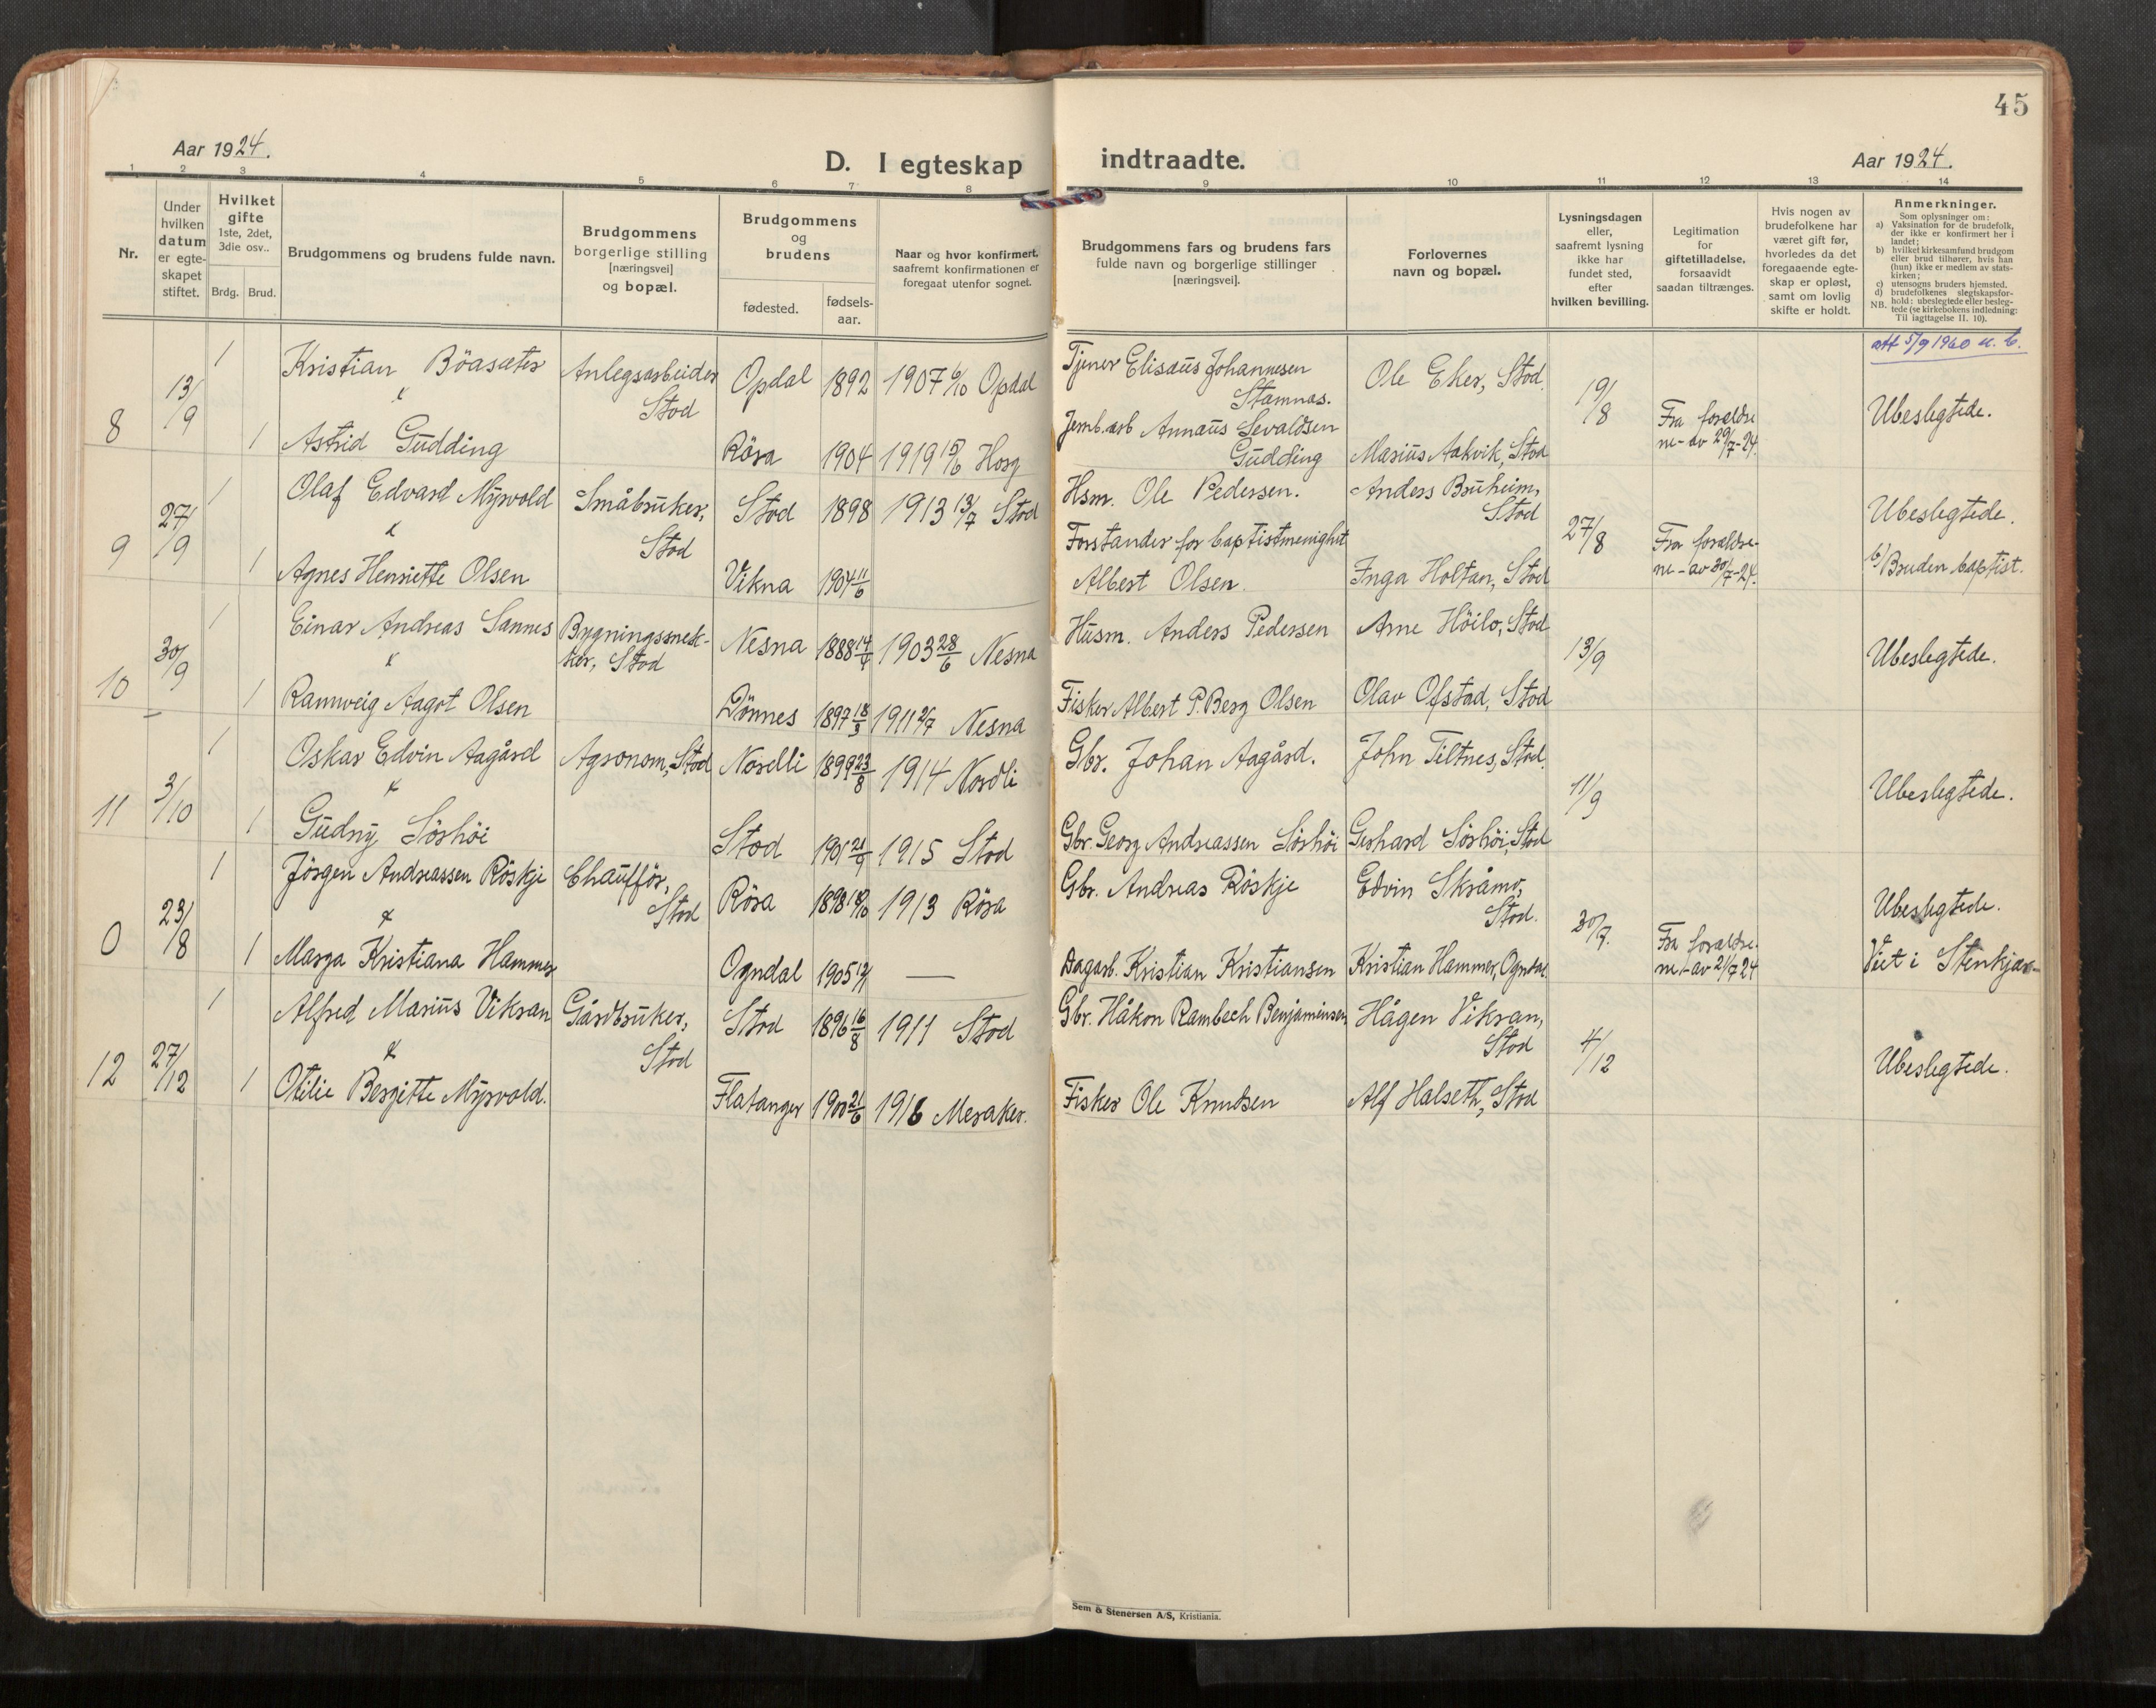 45
Aar 1924.
D. I egteskap indtraadte.
Aar 1924.
1 2 3 4 5 6 7 8 9 10 11 12 13 14
Nr.
Under
hvilken
datum
er egte-
skapet
stiftet.
Hvilket
gifte
1ste, 2det,
3die osv..
Brdg. Brud.
Brudgommens og brudens fulde navn.
Brudgommens
borgerlige stilling
[næringsvei]
og bopæl.
Brudgommens
og
brudens
fødested.
fødsels-
aar.
Naar og hvor konfirmert,
saafremt konfirmationen er
foregaat utenfor sognet.
Brudgommens fars og brudens fars
fulde navn og borgerlige stillinger
[næringsvei].
Forlovernes
navn og bopæl.
Lysningsdagen
eller,
saafremt lysning
ikke har
fundet sted,
efter
hvilken bevilling.
Legitimation
for
giftetilladelse,
forsaavidt
saadan tiltrænges.
Hvis nogen av
brudefolkene har
været gift før,
hvorledes da det
foregaaende egte-
skap er opløst,
samt om lovlig
skifte er holdt.
Anmerkninger.
Som oplysninger om:
a) Vaksination for de brudefolk,
der ikke er konfirmert her i
landet;
b) hvilket kirkesamfund brudgom
eller brud tilhører, hvis han
(hun) ikke er medlem av stats-
kirken;
c) utensogns bruders hjemsted.
d) brudefolkenes slegtskapsfor-
hold: ubeslegtede eller besleg-
tede (se kirkebokens indledning:
NB. Til iagttagelse II. 10).
att 5/9 1960 u. b.
8 13/9 1 Kristian Böasæter Anlegsarbeider Opdal 1892 1907 Opdal Tjener Elisæus Johannesen Ole Eker, Stod. 19/8
Stod Stamnes. Ubeslegtede.
1 Astrid Gudding Röra 1904 1919 Hosg Jernb.arb Annæus Sevaldsen Fra forældre
Gudding Marius Aakvik, Stod ne - av 29/7-24.
9 27/9 1 Olaf Edvard Myrvold Småbruker, Stod 1898 1913 13/7 Stod Hsm. Ole Pedersen. Anders Bruheim, 27/8 Ubeslegtede.
Stod Stod
1 Agnes Henriette Olsen Vikna 1904 11/6 Forstander for baptistmenighet Fra forældre-
Albert Olsen. Inga Holtan, Stod ne - av 30/7-24. b/ Bruden baptist.
10 30/9 1 Einar Andreas Sannes Bygningssnek- Nesna 1888 1903 28/6 Nesna Husm. Anders Pedersen Arne Höilo, Stod 13/9 Ubeslegtede.
ker, Stod
1 Rannveig Aagot Olsen Dönnes 1897 18/3 1911 Nesna Fisker Albert P. Berg Olsen Olav Ofstad, Stod
11 3/10 1 Oskar Edvin Aagård Agronom, Stod Nordli 1899 23/8 1914 Nordli Gbr. Johan Aagård. John Tiltnes, Stod. 11/9 Ubeslegtede.
1 Gudny Sörhöi Stod 1901 21/9 1915 Stod Gbr. Georg Andreassen Sörhöi Gerhard Sörhöi, Stod
0 23/8 1 Jörgen Andreassen Röskje Chaufför, Röra 1898 1913 Röra Gbr. Andreas Röskje Edvin Skråmo, 30/7. Ubeslegtede.
Stod Stod.
1 Marga Kristiana Hammer Ogndal 1905 — Dagarb. Kristian Kristiansen Kristian Hammer, Ogndal Fra forældre-
ne - av 21/7 24 Viet i Stenkjær
12 27/12 1 Alfred Marius Vikran Gårdbruker, Stod 1896 16/8 1911 Stod Gbr. Håkon Rambech Benjaminsen Hågen Vikran, 4/12 Ubeslegtede.
Stod Stod
1 Otilie Bergitte Myrvold. Flatanger 1900 21/6 1916 Meraker. Fisker Ole Knudsen Alf Halseth, Stod
Sem & Stenersen A/S, Kristiania.